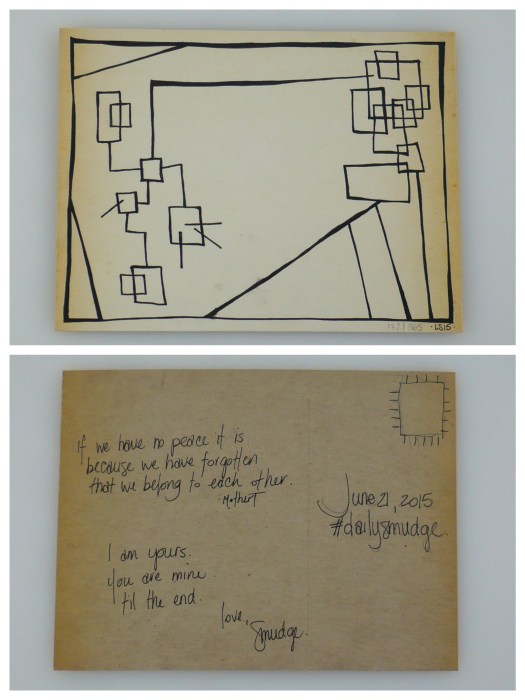 ·LS15·
If we have no peace it is
because we have forgotten
that we belong to each other.
MotherT
June 21, 2015
#dailysmudge.
I am yours.
you are mine.
til the end.
love,
Smudge.